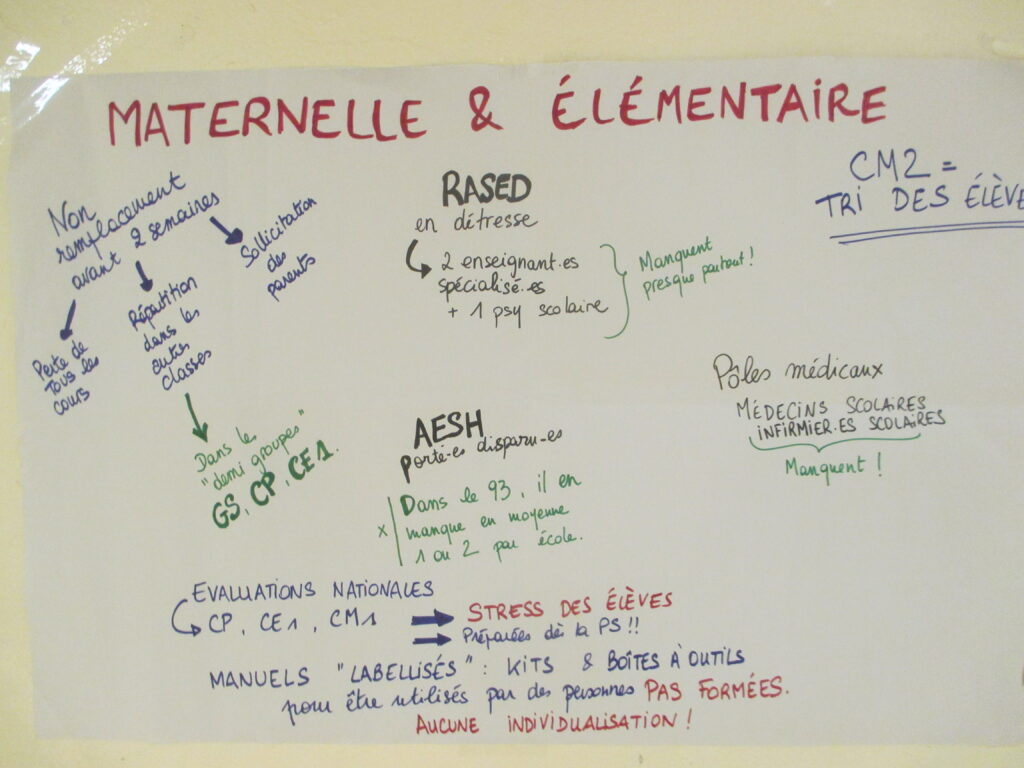 MATERNELLE & ÉLÉMENTAIRE
Non
remplacement
avant 2 semaines
Perte de
tous les
cours
Répartition
dans les
autres
classes
Sollicitation
des
parents
Dans les
"demi groupes"
GS, CP, CE1.
RASED
en détresse
2 enseignant.es
spécialisé.es
+ 1 psy scolaire
Manquent
presque partout !
CM2 =
TRI DES ÉLÈVE
Pôles médicaux
MÉDECINS SCOLAIRES
INFIRMIER.ES SCOLAIRES
Manquent !
AESH
porté-es disparu-es
x Dans le 93, il en
manque en moyenne
1 ou 2 par école.
EVALUATIONS NATIONALES
CP, CE1, CM1
STRESS DES ÉLÈVES
Préparées dès la PS !!
MANUELS "LABELLISÉS" : KITS & BOÎTES À OUTILS
pour être utilisés par des personnes PAS FORMÉES.
AUCUNE INDIVIDUALISATION !